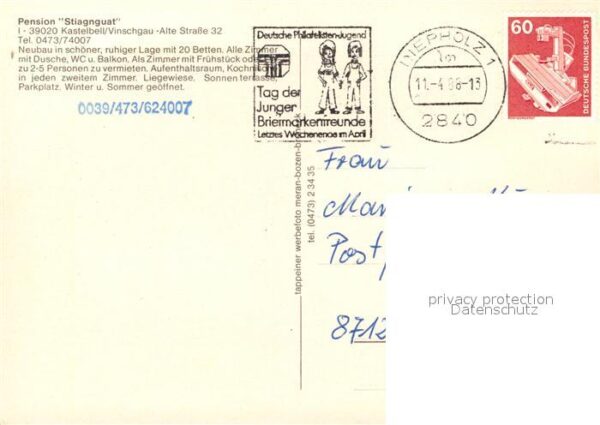 Pension "Stiagnguat"
I - 39020 Kastelbell/Vinschgau -Alte Straße 32
Tel. 0473/74007
Neubau in schöner, ruhiger Lage mit 20 Betten. Alle Zimmer
mit Dusche, WC u. Balkon. Als Zimmer mit Frühstück
zu 2-5 Personen zu vermieten. Aufenthaltsraum,
in jeden zweitem Zimmer. Liegewiese. Sonnenterrasse,
Parkplatz. Winter u. Sommer geöffnet.
0039/473/624007
Deutsche Philatelisten-Jugend
Tag der
Junger
Briefmarkenfreunde
Letztes Wochenende im April
DIEPHOLZ 1
11.-4.86-13
2840
60
DEUTSCHE BUNDESPOST
tappeiner werbefoto meran-bozen
tel. (0473) 2 34 35
Frau
Post
8712
privacy protection
Datenschutz